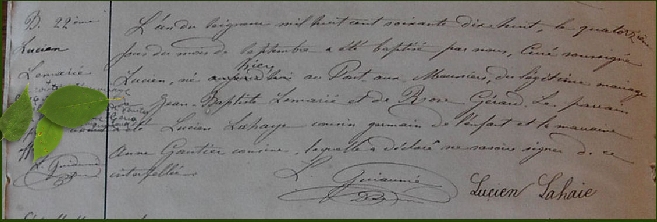 B. 22ème
Lucien
Lemarié
L'an du Seigneur mil huit cent soixante dix huit, le quatorzième
jour du mois de Septembre a été baptisé par nous, Curé soussigné
hier
Lucien, né aujourd'hui au Port aux Mauriers, du légitime mariage
Jean Baptiste Lemarié et de Rose Gérard. Le parrain
a été Lucien Lahaye cousin germain de l'enfant et la marraine
Anne Gautier cousine, laquelle a déclaré ne savoir signer de ce
interpellée.
Guiaumé
Lucien Lahaie